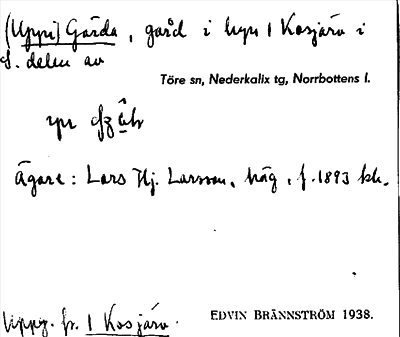 (Uppi) Gårda, gård i byn 1 Kosjärv i
s. delen av
Töre sn, Nederkalix tg, Norrbottens l.
Ägare: Lars Hj. Larsson, häg, f. 1893 kh.
Uppg. fr. 1 Kosjärv.
EDVIN BRÄNNSTRÖM 1938.